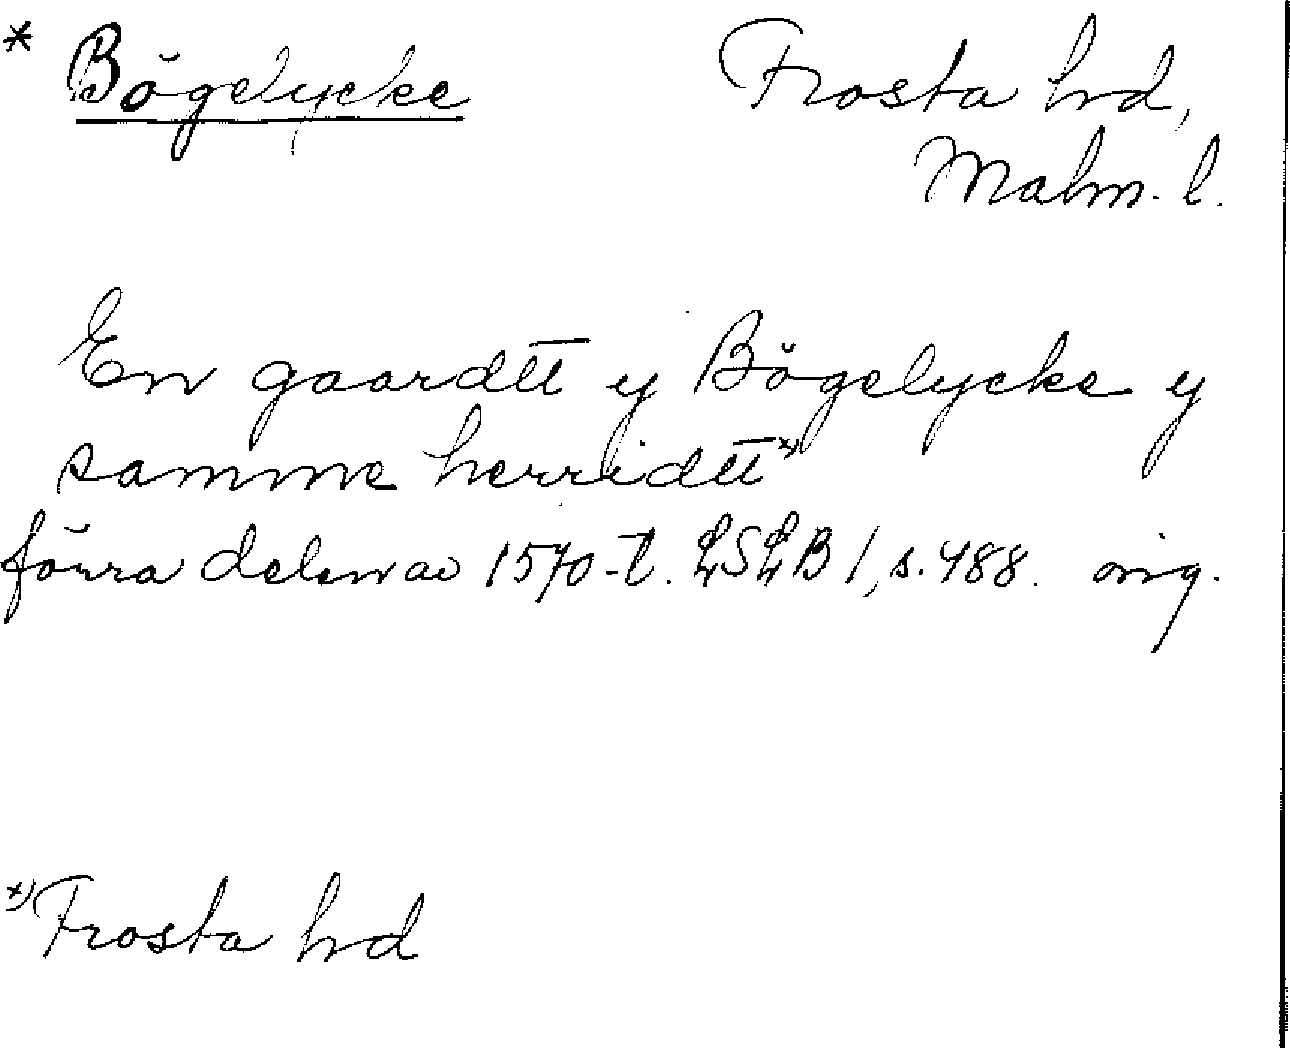 * Bögelycke Frosta hd,
Malm. l.
En gaardtt y Bögelycke y
samme herridtt*)
förra delen av 1570-t. LSLB 1, s. 488. orig.
*) Frosta hd